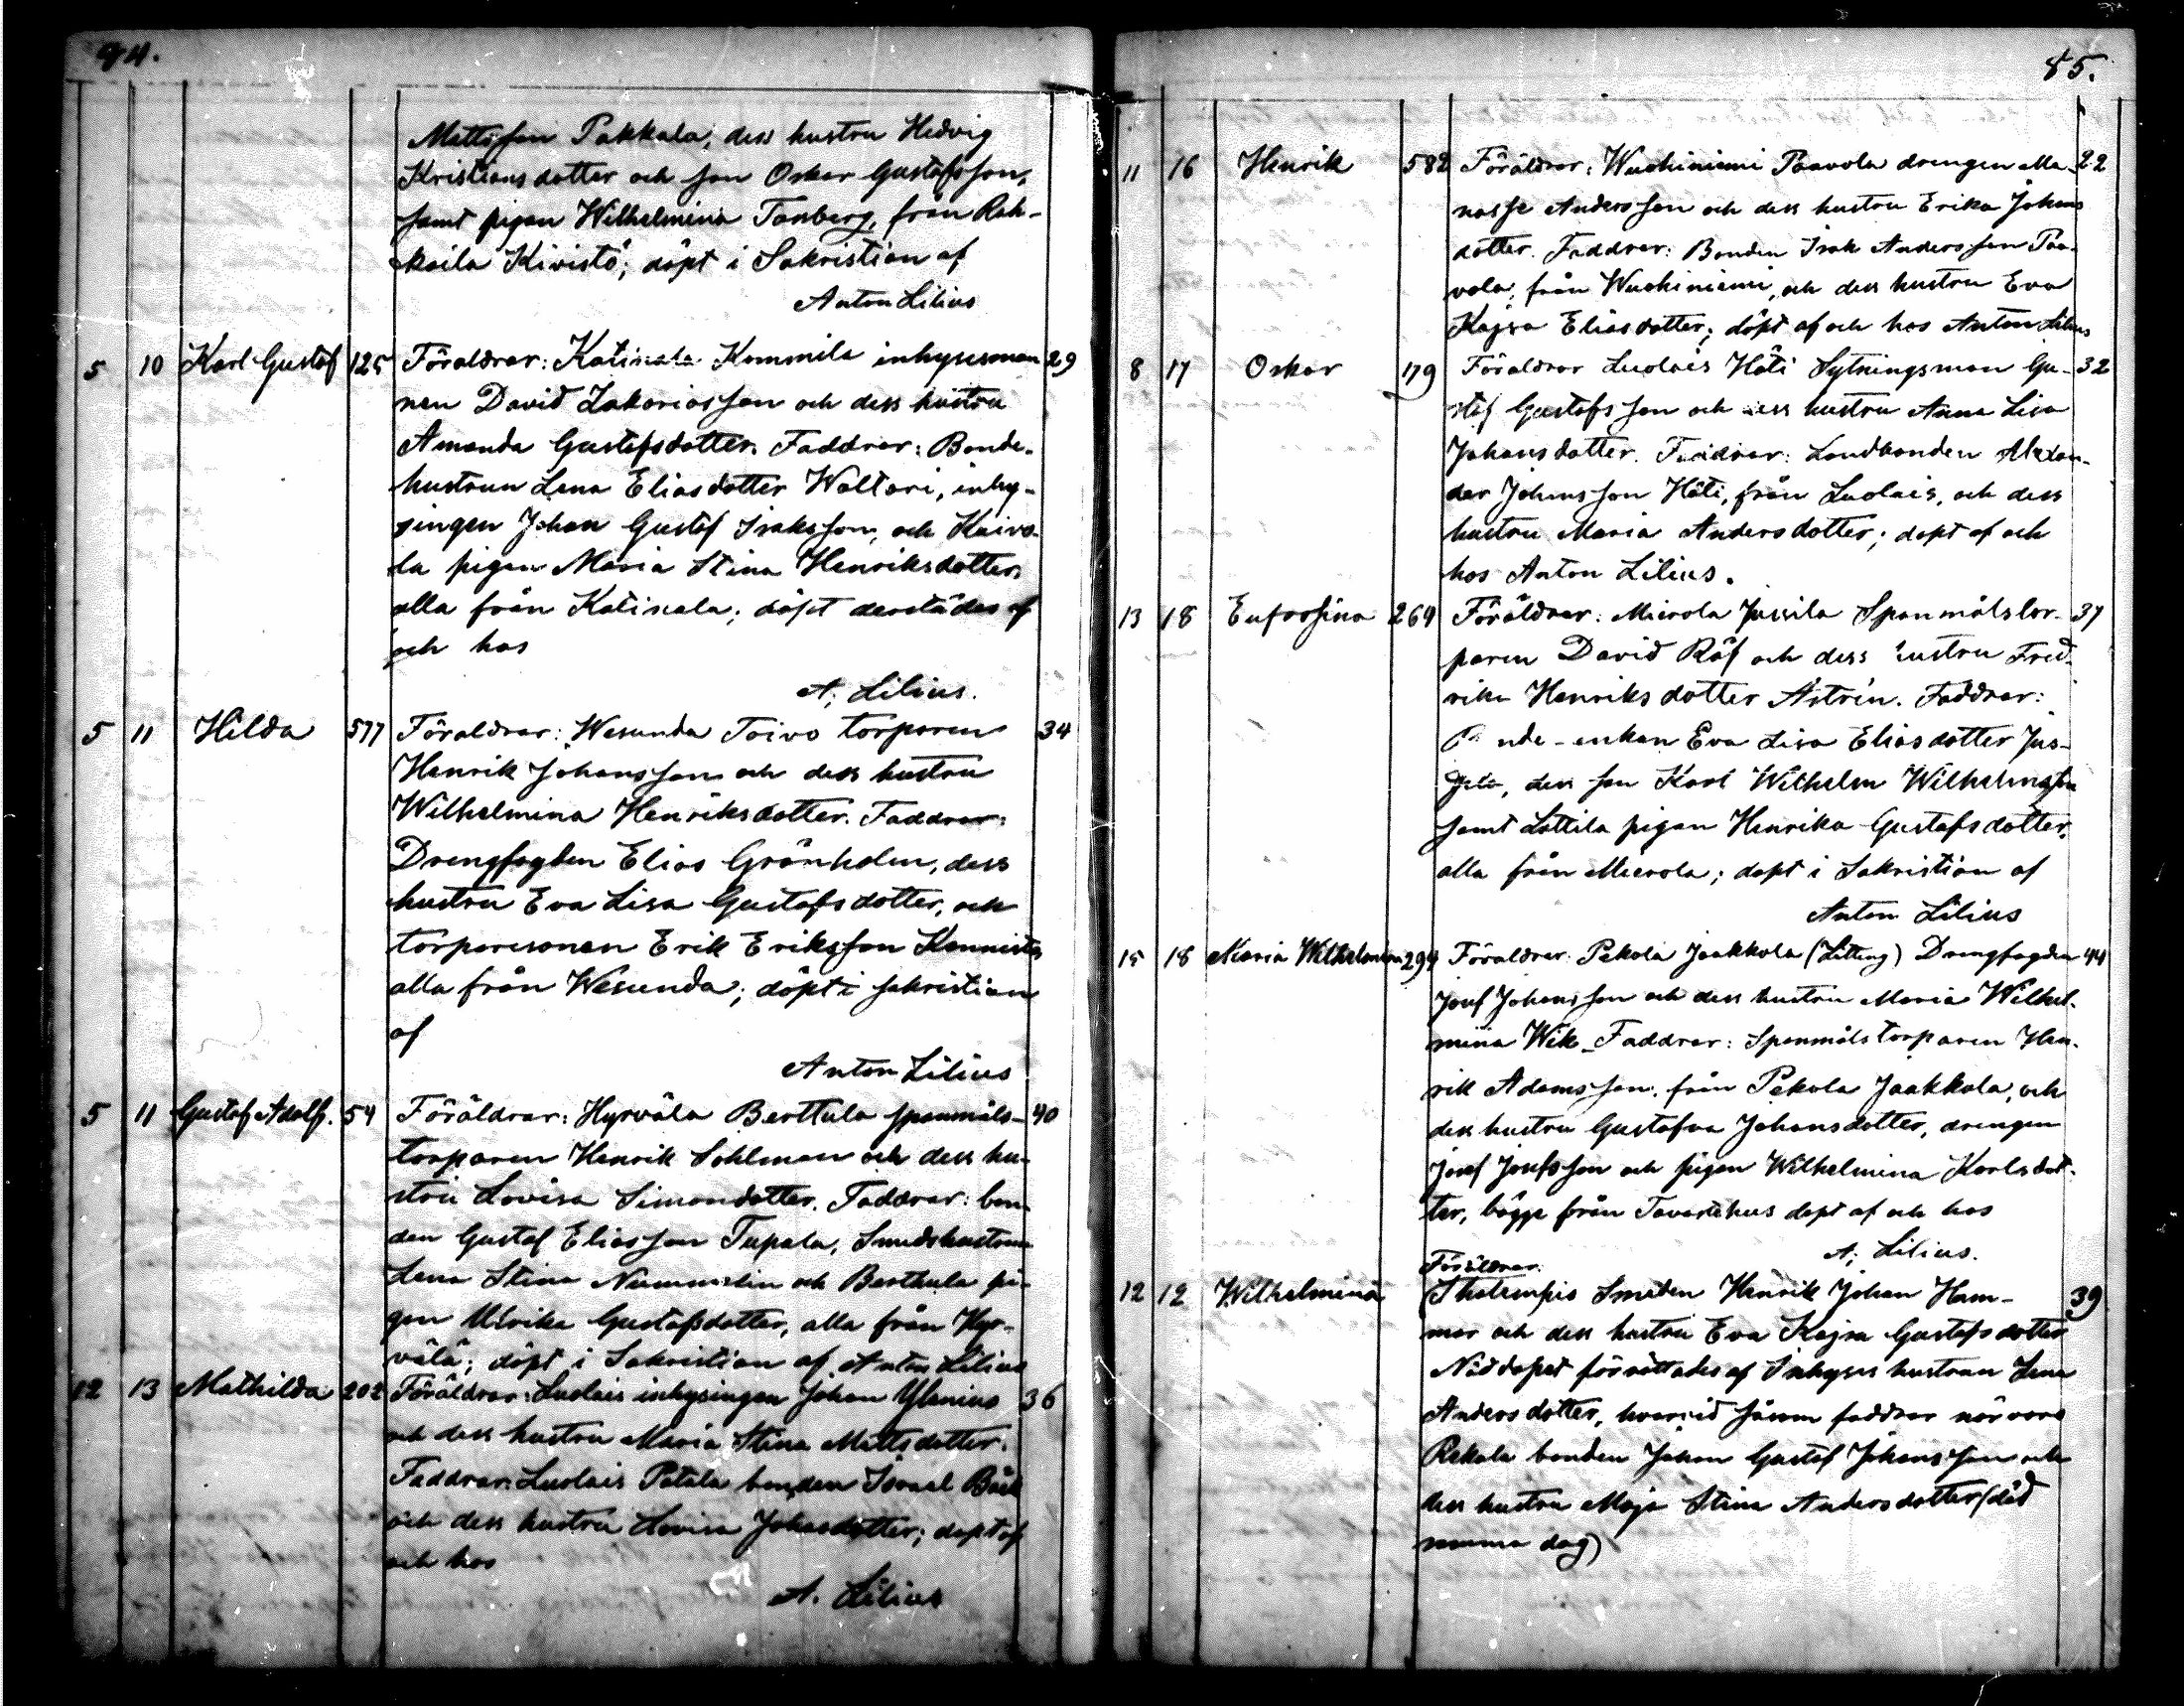 94.
Mattsson Pakkala, dess hustru Hedvig
Kristiansdotter och son Oskar Gustafsson,
samt pigan Wilhelmina Tanberg, från Rah-
koila Kivistö; döpt i Sakristian af
Anton Lilius
5 10 Karl Gustaf 125 Föräldrar: Katinala Kommila inhysesman- 29
nen David Zakariasson och dess hustru
Amanda Gustafsdotter. Faddrar: Bonde-
hustrun Lena Eliasdotter Waltari, inhy-
singen Johan Gustaf Isaksson, och Kaivo-
la pigan Maria Stina Henriksdotter,
alla från Katinala; döpt derstädes af
och hos
A. Lilius.
5 11 Hilda 577 Föräldrar: Wesunda Toivo torparen 34
Henrik Johansson och dess hustru
Wilhelmina Henriksdotter. Faddrar:
Drengfogden Elias Grönholm, dess
hustru Eva Lisa Gustafsdotter, och
torparesonen Erik Eriksson Kannisto,
alla från Wesunda; döpt i sakristian
af
Anton Lilius
5 11 Gustaf Adolf. 54 Föräldrar: Hyrvälä Berttula spanmåls- 40
torparen Henrik Sohlman och dess hu-
stru Lovisa Simondotter. Faddrar: bon-
den Gustaf Eliasson Tupala, Smedshustrun
Lena Stina Nummelin och Berthula pi-
gan Ulrika Gustafsdotter, alla från Hyr-
välä; döpt i Sakristian af Anton Lilius
12 13 Mathilda 202 Föräldrar: Luolais inhysingen Johan Ylenius 36
och dess hustru Maria Stina Mattsdotter.
Faddrar: Luolais Patala bonden Israel Bäck
och dess hustru Lovisa Johansdotter; döpt af
och hos
A. Lilius
85.
11 16 Henrik 582 Föräldrar: Wuohiniemi Paavola drengen Ma- 22
nasse Andersson och dess hustru Erika Johans
dotter. Faddrar: Bonden Isak Andersson Paa-
vola, från Wuohiniemi, och dess hustru Eva
Kajsa Eliasdotter; döpt af och hos Anton Lilius
8 17 Oskar 179 Föräldrar Luolais Häti Sytningsman Gu- 32
staf Gustafsson och dess hustru Anna Lisa
Johansdotter. Faddrar: Landbonden Alexan-
der Johansson Häti, från Luolais, och dess
hustru Maria Andersdotter; döpt af och
hos Anton Lilius.
13 18 Eufrosina 264 Föräldrar: Mierola Jussila Spanmålstor- 37
paren David Räf och dess hustru Fred-
rika Henriksdotter Åstrén. Faddrar:
Bonde-enkan Eva Lisa Eliasdotter Jus-
sila, dess son Karl Wilhelm Wilhelmsson
samt Lottila pigan Henrika Gustafsdotter,
alla från Mierola; döpt i Sakristian af
Anton Lilius
15 18 Maria Wilhelmina 294 Föräldrar: Pekola Jaakkola (Litteng) Drengfogden 44
Josef Johansson och dess hustru Maria Wilhel-
mina Wik. Faddrar: Spanmåls torparen Hen-
rik Adamsson, från Pekola Jaakkola, och
dess hustru Gustafva Johansdotter, drengen
Josef Josefsson och pigan Wilhelmina Karlsdot-
ter, bägge från Tavastehus döpt af och hos
A. Lilius.
Föräldrar:
12 12 Wilhelmina Skatempio Smeden Henrik Johan Ham- 39
mar och dess hustru Eva Kajsa Gustafsdotter
Nöddopet förrättades af Inhyses hustrun Lena
Andersdotter, hvarvid såsom faddrar närvoro
Rekola bonden Johan Gustaf Johansson och
dess hustru Maja Stina Andersdotter (död
samma dag)